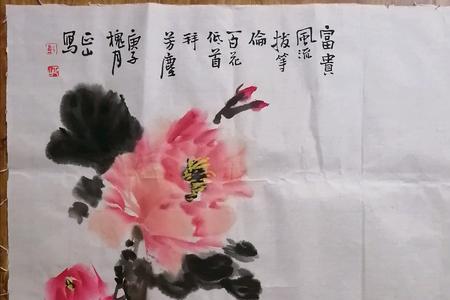 富貴
風流
拔等
倫
百花
低首
拜
芳塵
庚子
槐月
正山
寫